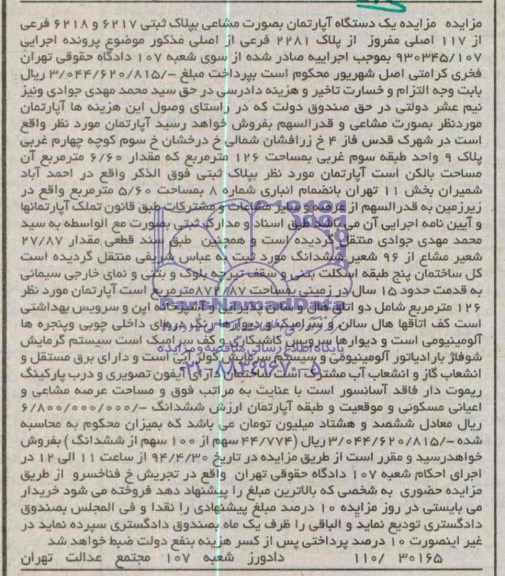 مزایده مزایده یک دستگاه آپارتمان بصورت مشاعی بپلاک ثبتی ۶۲۱۷ و ۶۲۱۸ فرعی
از ۱۱۷ اصلی مفروز از پلاک ۲۲۸۱ فرعی از اصلی مذکور موضوع پرونده اجرایی
۹۳۰۳۴۵/۱۰۷ بموجب اجراییه صادر شده از سوی شعبه ۱۰۷ دادگاه حقوقی تهران
فخری کرامتی اصل شهرپور محکوم است بپرداخت مبلغ -/۳/۰۴۴/۶۲۰/۸۱۵ ریال
بابت وجه التزام و خسارت تاخیر و هزینه دادرسی در حق سید محمد مهدی جوادی ونیز
نیم عشر دولتی در حق صندوق دولت که در راستای وصول این هزینه ها آپارتمان
موردنظر بصورت مشاعی و قدرالسهم بفروش خواهد رسید آپارتمان مورد نظر واقع
است در شهرک قدس فاز ۴ خ زرافشان شمالی خ درخشان خ سوم کوچه چهارم غربی
پلاک ۹ واحد طبقه سوم غربی بمساحت ۱۲۶ مترمربع که مقدار ۶/۶۰ مترمربع آن
مساحت بالکن است آپارتمان مورد نظر بپلاک ثبتی فوق الذکر واقع در احمد آباد
شمیران بخش ۱۱ تهران بانضمام انباری شماره ۸ بمساحت ۵/۶۰ مترمربع واقع در
زیرزمین به قدرالسهم از عرصه و سایر مشاعات و مشترکات طبق قانون تملک آپارتمانها
و آیین نامه اجرایی آن می باشد طبق اسناد و مدارک ثبتی بصورت مع الواسطه به سید
محمد مهدی جوادی منتقل گردیده است و همچنین طبق سند قطعی مقدار ۲۷/۸۷
شعیر مشاع از ۹۶ شعیر ششدانگ مورد ثبت به عباس شریفی منتقل گردیده است
کل ساختمان پنج طبقه اسکلت بتنی و سقف تیرچه بلوک و بتنی و نمای خارجی سیمانی
به قدمت حدود ۱۵ سال در زمینی بمساحت ۸۷۲/۸۷مترمربع است آپارتمان مورد نظر
۱۲۶ مترمربع شامل دو اتاق هال و سالن پذیرایی و آشپزخانه اپن و سرویس بهداشتی
است کف اتاقها هال سالن و سرامیک و دیوارها رنگ دربهای داخلی چوبی وپنجره ها
آلومینیومی است و دیوارها سرویس کاشیکاری و کف سرامیک است سیستم گرمایش
شوفاژ بارادیاتور آلومینیومی و سیستم سرمایش کولر آبی است و دارای برق مستقل و
انشعاب گاز و انشعاب آب مشترک است ساختمان دارای آیفون تصویری و درب پارکینگ
ریموت دار فاقد آسانسور است با عنایت به مراتب فوق و مساحت عرصه مشاعی و
اعیانی مسکونی و موقعیت و طبقه آپارتمان ارزش ششدانگ -/۶/۸۰۰/۰۰۰/۰۰۰
ریال معادل ششصد و هشتاد میلیون تومان می باشد که بمیزان محکوم به محاسبه
شده -/۳/۰۴۴/۶۲۰/۸۱۵ ریال (۴۴/۷۷۴ سهم از ۱۰۰ سهم از ششدانگ) بفروش
خواهدرسید و مقرر است از طریق مزایده در تاریخ ۹۴/۴/۳۰ از ساعت ۱۱ الی ۱۲ در
اجرای احکام شعبه ۱۰۷ دادگاه حقوقی تهران واقع در تجریش خ فناخسرو از طریق
مزایده حضوری به شخصی که بالاترین مبلغ را پیشنهاد دهد فروخته می شود خریدار
می بایستی در روز مزایده ۱۰ درصد مبلغ پیشنهادی را نقدا و فی المجلس بصندوق
دادگستری تودیع نماید و الباقی را ظرف یک ماه بصندوق دادگستری سپرده نماید در
غیر اینصورت ۱۰ درصد پرداختی پس از کسر هزینه بنفع دولت ضبط خواهد شد
۳۰۱۶۵ /۱۱۰ دادورز شعبه ۱۰۷ مجتمع عدالت تهران
ParsNamadData
پایگاه اطلاع رسانی مناقصه و مزایده
۰۲۱-۸۸۳۴۹۶۷۰-۵